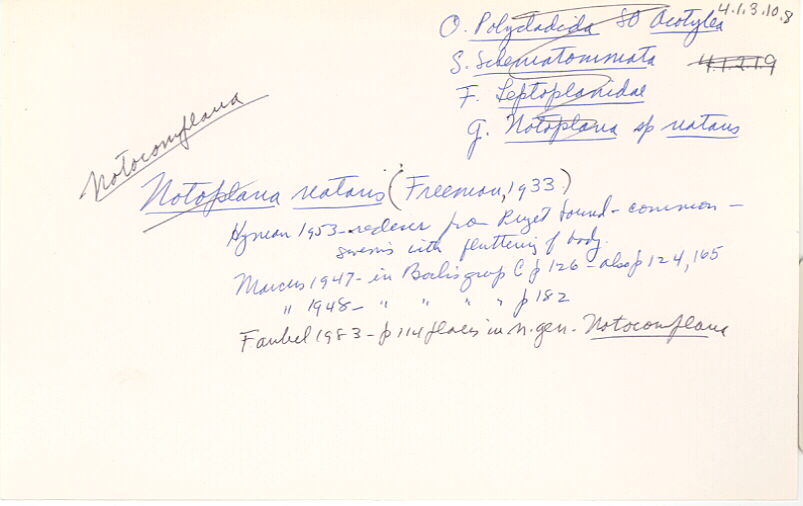 4.1.3.10.8
O. Polycladida SO Acotylea
S. Schematommata 4.1.2.1.9
F. Leptoplanidae
g. Notoplana sp natans
Notocomplana
Notoplana natans (Freeman, 1933)
Hyman 1953 - redescr from Puget Sound - common -
swims with fluttering of body.
Marcus 1947 - in Boehmig group C p 126 - also p 124, 165
" 1948 - " " " " p 182
Faubel 1983 - p 114 places in n. gen. Notocomplana